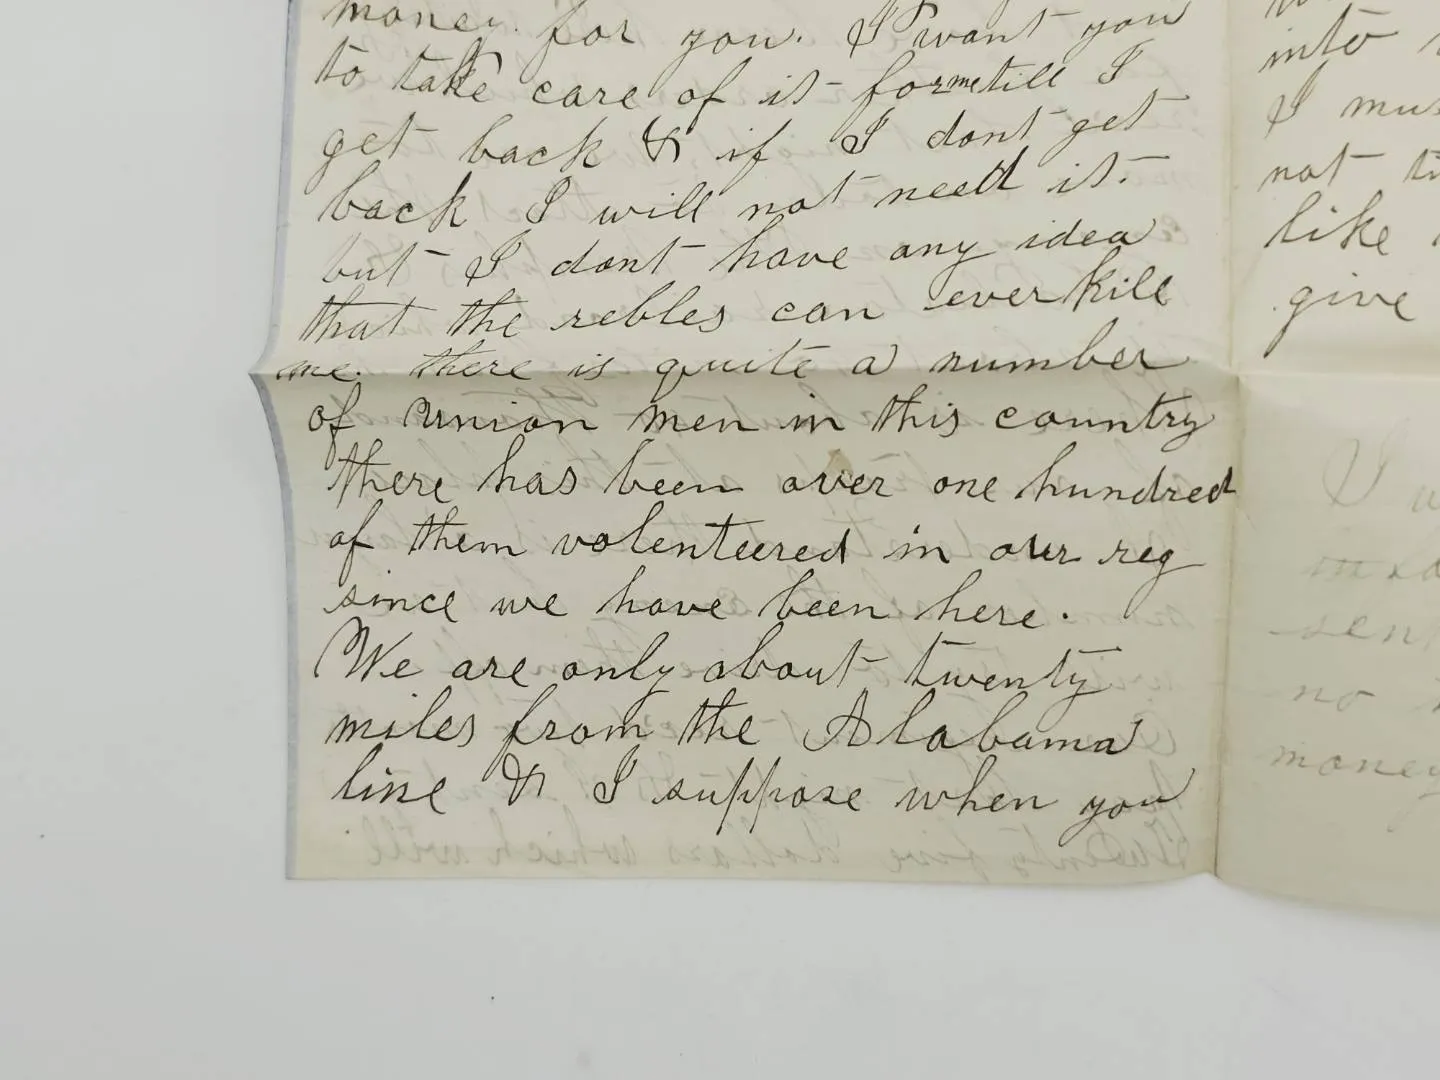 money. for you. I want you
to take care of it for me till I
get back & if I dont get
back I will not need it.
but I dont have any idea
that the rebles can ever kill
me. there is quite a number
of Union men in this country
there has been over one hundred
of them volenteered in our reg
since we have been here.
We are only about twenty
miles from the Alabama
line & I suppose when you
into
I
not
like
give
I
no
money